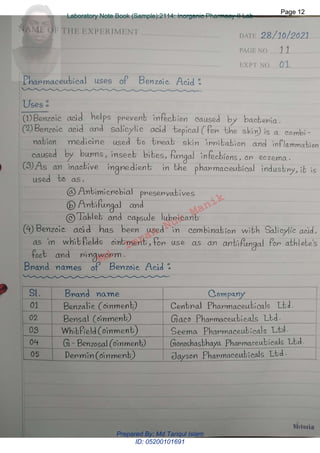 Page 12
Laboratory Note Book (Sample);2114: Inorganic Pharmacy-II Lab
NAME OF THE EXPERIMENT
DATE 28/10/2021
PAGE NO 11
EXPT NO. 01
Pharmaceutical uses of Benzoic Acid :
Uses :
(1) Benzoic acid helps prevent infection caused by bacteria.
(2) Benzoic acid and salicylic acid topical (for the skin) is a combi-
nation medicine used to treat skin irritation and inflammation
caused by burns, insect bites, fungal infections, or eczema.
(3) As an inactive ingredient in the pharmaceutical industry, it is
used to as.
(a) Antimicrobial preservatives
(b) Antifungal and
(c) Tablet and capsule lubricant
(4) Benzoic acid has been used in combination with Salicylic acid.
as in whitfields ointment, for use as an antifungal for athlete's
foot and ringworm.
Brand names of Benzoic Acid :
Sl. Brand name Company
01 Benzalic (oinment) Central Pharmaceuticals Ltd.
02 Bensal (oinment) Giaco Pharmaceuticals Ltd.
03 Whitfield (oinment) Seema Pharmaceuticals Ltd.
04 G-Benzosal (oinment) Gonoshasthaya Pharmaceuticals Ltd.
05 Dermin (oinment) Jayson Pharmaceuticals Ltd.
Manik
Victoria
Prepared By: Md.Tariqul Islam
ID: 05200101691